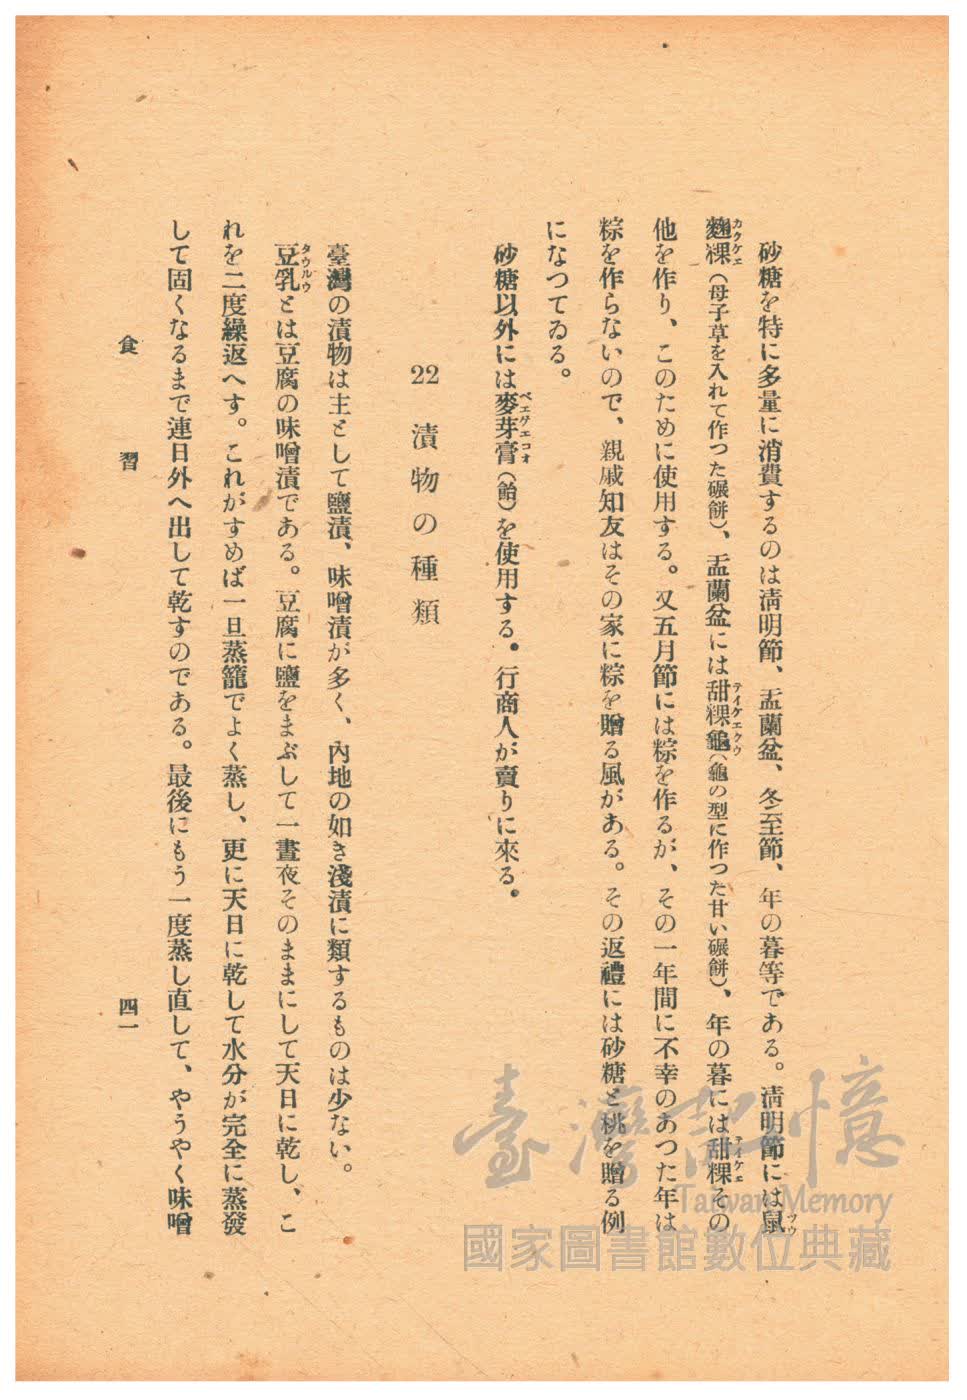 砂糖を特に多量に消費するのは淸明節、盂蘭盆、冬至節、年の暮等である。淸明節には鼠
麴粿（母子草を入れて作つた碾餠）、盂蘭盆には甜粿龜（龜の型に作つた甘い碾餠）、年の暮には甜粿その
他を作り、このために使用する。又五月節には粽を作るが、その一年間に不幸のあつた年は
粽を作らないので、親戚知友はその家に粽を贈る風がある。その返禮には砂糖と桃を贈る例
になつてゐる。
砂糖以外には麥芽膏（飴）を使用する。行商人が賣りに來る。
22 漬物の種類
臺灣の漬物は主として鹽漬、味噌漬が多く、內地の如き淺漬に類するものは少ない。
豆乳とは豆腐の味噌漬である。豆腐に鹽をまぶして一晝夜そのままにして天日に乾し、こ
れを二度繰返へす。これがすめば一旦蒸籠でよく蒸し、更に天日に乾して水分が完全に蒸發
して固くなるまで連日外へ出して乾すのである。最後にもう一度蒸し直して、やうやく味噌
食習
四一
ツウ
カクケエ
テイケエクウ
テイケエ
ベエゲエコオ
タウルウ
臺灣記憶
Taiwan Memory
國家圖書館數位典藏